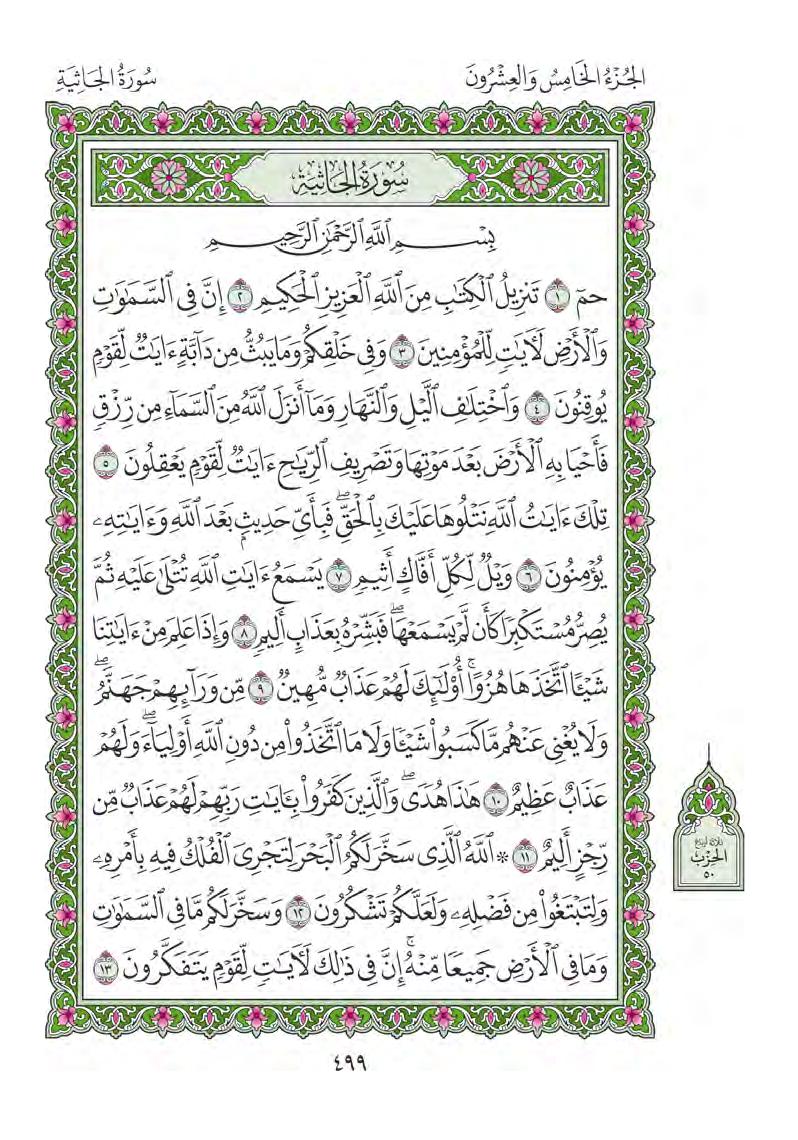 الجُزْءُ الخَامِسُ وَالعِشْرُونَ
سُورَةُ الجَاثِيَةِ
سُورَةُ الجَاثِيَة
بِسْمِ ٱللَّهِ ٱلرَّحْمَٰنِ ٱلرَّحِيمِ
حمٓ ١ تَنزِيلُ ٱلْكِتَٰبِ مِنَ ٱللَّهِ ٱلْعَزِيزِ ٱلْحَكِيمِ ٢ إِنَّ فِى ٱلسَّمَٰوَٰتِ
وَٱلْأَرْضِ لَءَايَٰتٍ لِّلْمُؤْمِنِينَ ٣ وَفِى خَلْقِكُمْ وَمَا يَبُثُّ مِن دَآبَّةٍ ءَايَٰتٌ لِّقَوْمٍ
يُوقِنُونَ ٤ وَٱخْتِلَٰفِ ٱلَّيْلِ وَٱلنَّهَارِ وَمَآ أَنزَلَ ٱللَّهُ مِنَ ٱلسَّمَآءِ مِن رِّزْقٍ
فَأَحْيَا بِهِ ٱلْأَرْضَ بَعْدَ مَوْتِهَا وَتَصْرِيفِ ٱلرِّيَٰحِ ءَايَٰتٌ لِّقَوْمٍ يَعْقِلُونَ ٥
تِلْكَ ءَايَٰتُ ٱللَّهِ نَتْلُوهَا عَلَيْكَ بِٱلْحَقِّۖ فَبِأَىِّ حَدِيثٍۭ بَعْدَ ٱللَّهِ وَءَايَٰتِهِۦ
يُؤْمِنُونَ ٦ وَيْلٌ لِّكُلِّ أَفَّاكٍ أَثِيمٍ ٧ يَسْمَعُ ءَايَٰتِ ٱللَّهِ تُتْلَىٰ عَلَيْهِ ثُمَّ
يُصِرُّ مُسْتَكْبِرًا كَأَن لَّمْ يَسْمَعْهَاۖ فَبَشِّرْهُ بِعَذَابٍ أَلِيمٍ ٨ وَإِذَا عَلِمَ مِنْ ءَايَٰتِنَا
شَيْـًٔا ٱتَّخَذَهَا هُزُوًاۚ أُو۟لَٰٓئِكَ لَهُمْ عَذَابٌ مُّهِينٌ ٩ مِّن وَرَآئِهِمْ جَهَنَّمُۖ
وَلَا يُغْنِى عَنْهُم مَّا كَسَبُوا۟ شَيْـًٔا وَلَا مَا ٱتَّخَذُوا۟ مِن دُونِ ٱللَّهِ أَوْلِيَآءَۖ وَلَهُمْ
عَذَابٌ عَظِيمٌ ١٠ هَٰذَا هُدًىۖ وَٱلَّذِينَ كَفَرُوا۟ بِـَٔايَٰتِ رَبِّهِمْ لَهُمْ عَذَابٌ مِّن
رِّجْزٍ أَلِيمٌ ١١ ۞ ٱللَّهُ ٱلَّذِى سَخَّرَ لَكُمُ ٱلْبَحْرَ لِتَجْرِىَ ٱلْفُلْكُ فِيهِ بِأَمْرِهِۦ
وَلِتَبْتَغُوا۟ مِن فَضْلِهِۦ وَلَعَلَّكُمْ تَشْكُرُونَ ١٢ وَسَخَّرَ لَكُم مَّا فِى ٱلسَّمَٰوَٰتِ
وَمَا فِى ٱلْأَرْضِ جَمِيعًا مِّنْهُۚ إِنَّ فِى ذَٰلِكَ لَءَايَٰتٍ لِّقَوْمٍ يَتَفَكَّرُونَ ١٣
ثلاثة أرباع
الحِزْب
٥٠
٤٩٩